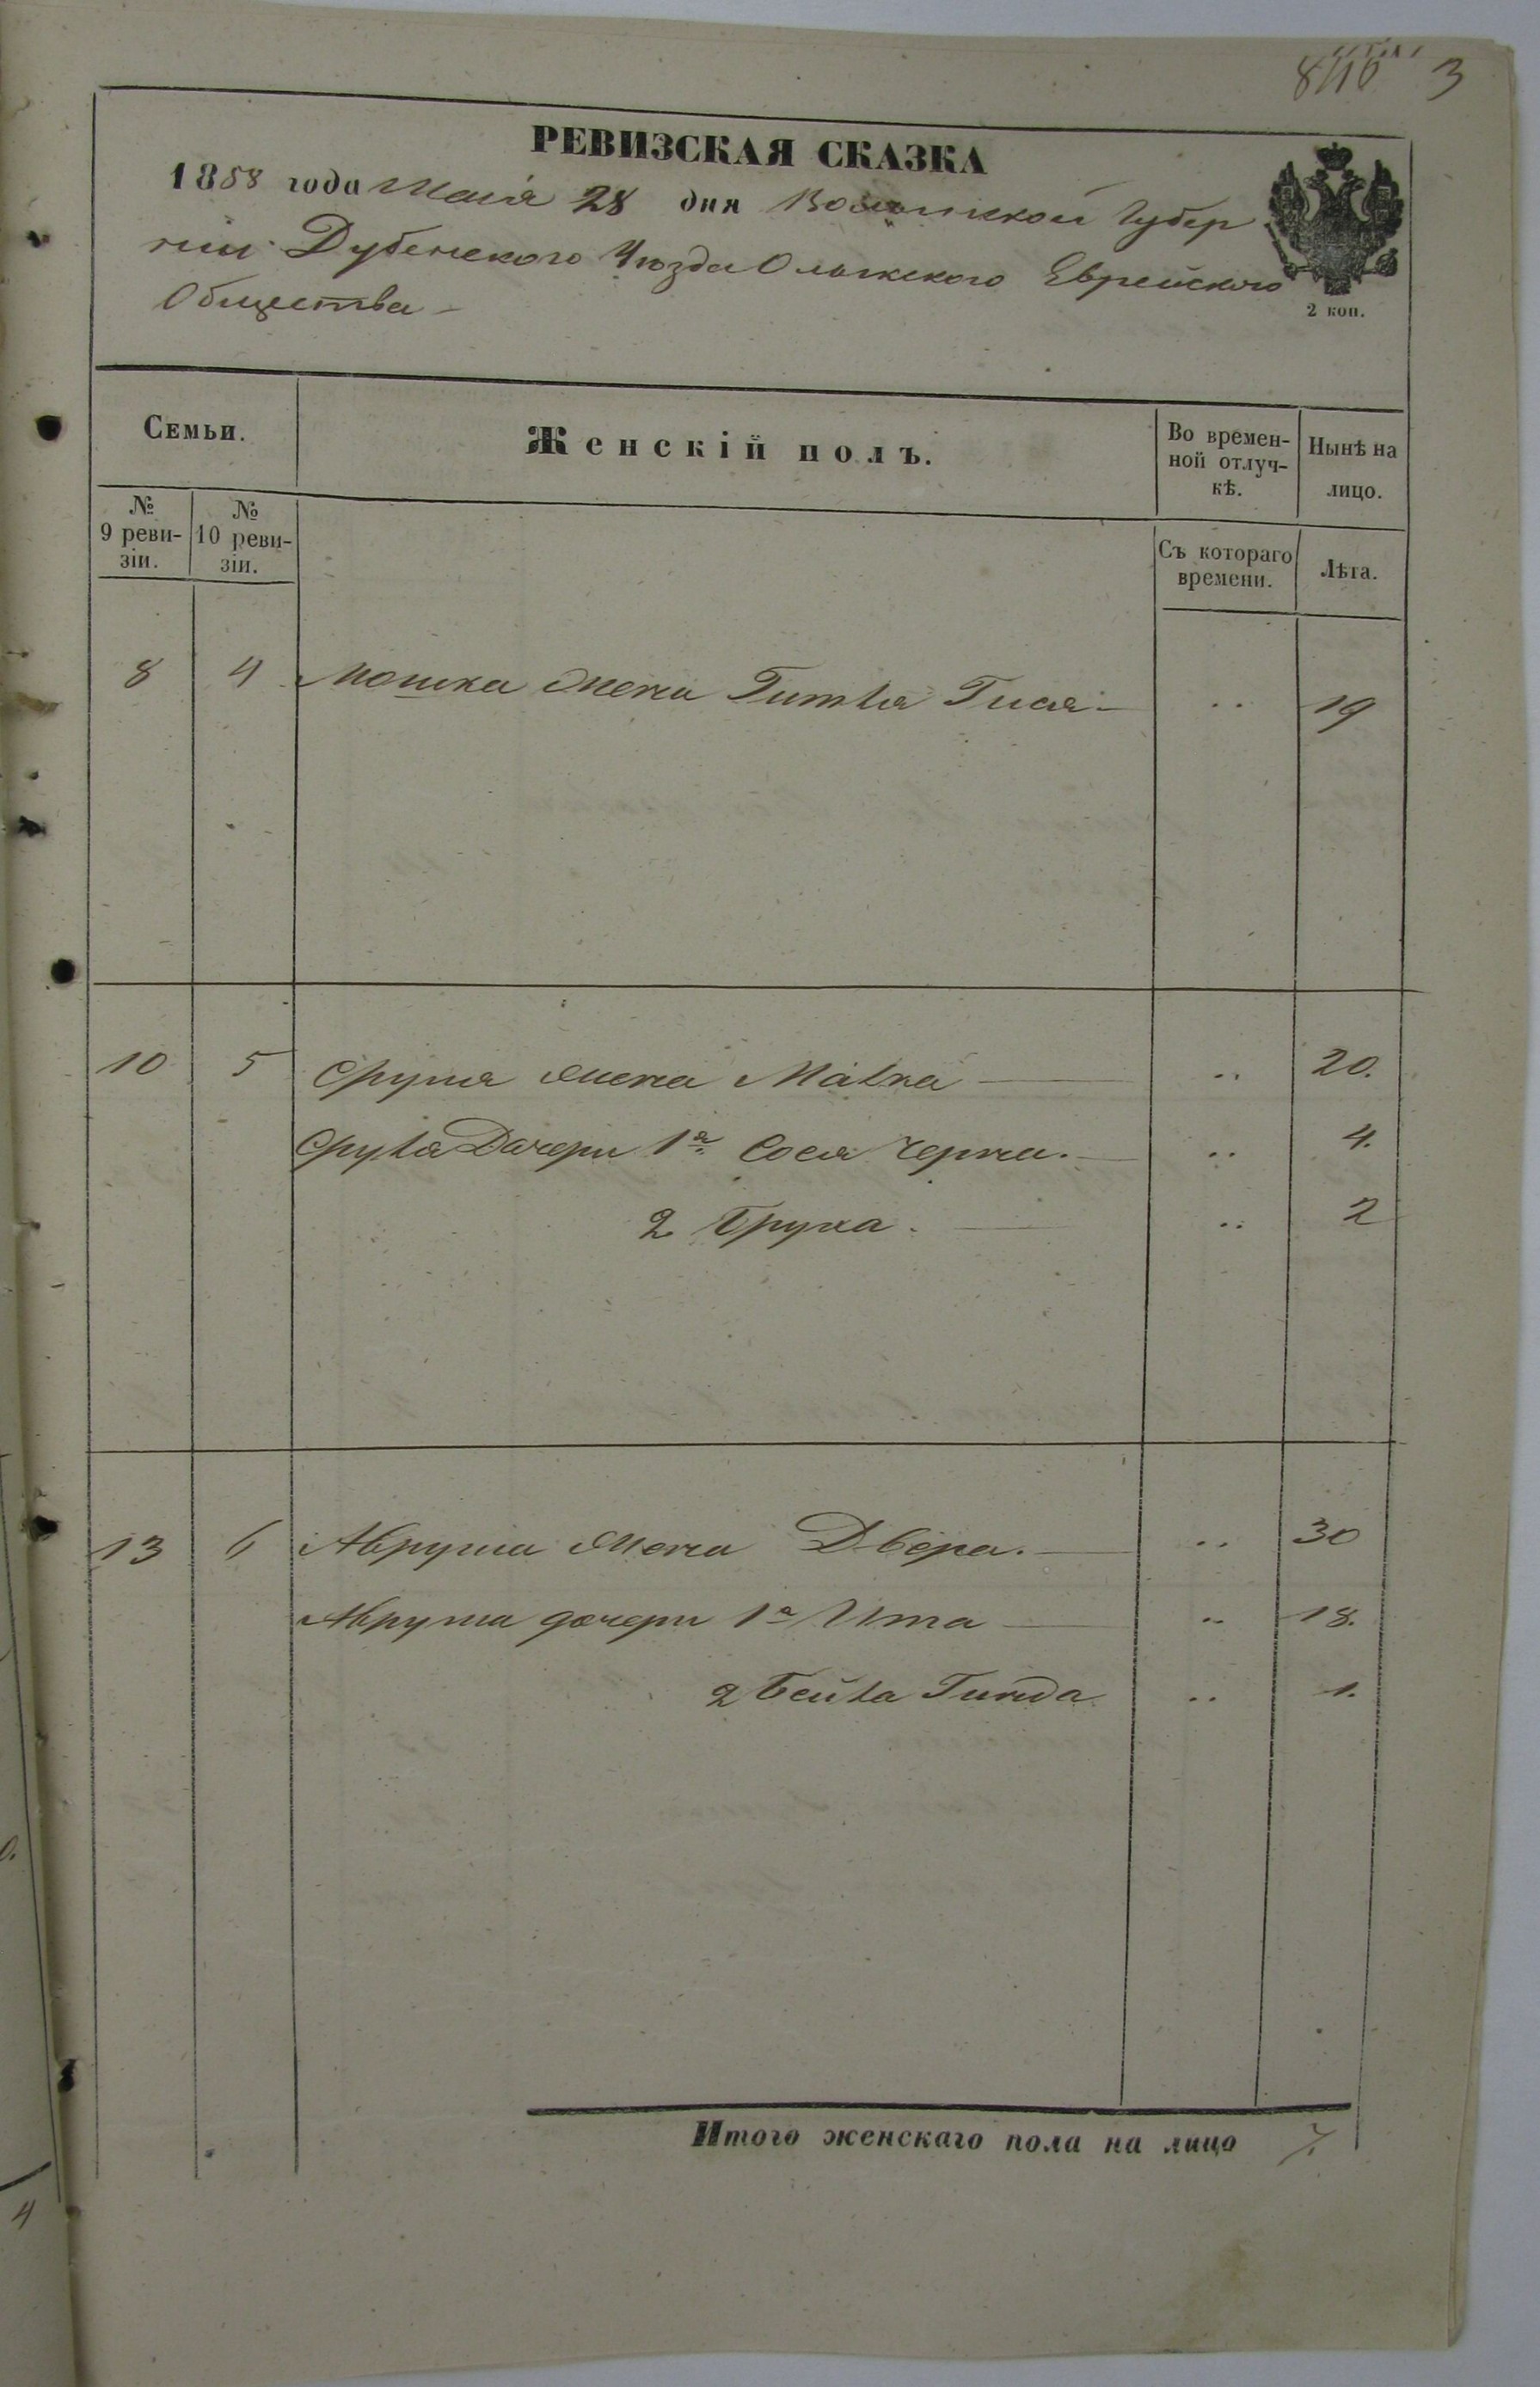 3
РЕВИЗСКАЯ СКАЗКА
1858 года Мая 28 дня Волынской Губер
нии Дубенского Уѣзда Олыкского Еврейского
Общества
2 коп.
Семьи.
Женскій полъ.
Во времен-
ной отлуч-
кѣ.
Нынѣ на
лицо.
№
9 реви-
зіи.
№
10 реви-
зіи.
Съ котораго
времени.
Лѣта.
8 4 Мошка жена Гитля Гися 19
10 5 Сруля жена Малка 20.
Сруля Дочери 1я Сося Черна. 4.
2 Бруха. 2
13 6 Аврума жена Двера. 30
Аврума дочери 1я Ита 18.
2 Бейля Гинда 1.
Итого женскаго пола на лицо 7.
4